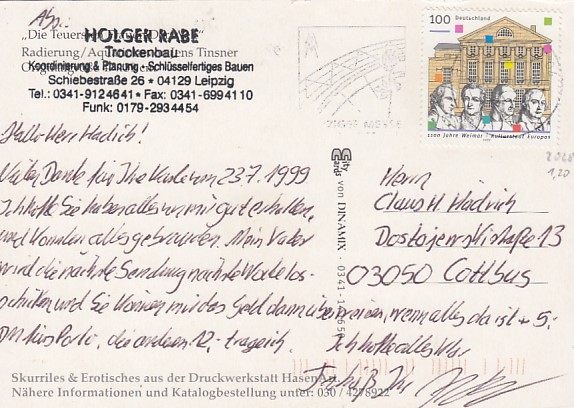 Abs.:
"Die Teuers
HOLGER RABE
Radierung/Aqua ens Tinsner
Trockenbau
Koordinierung & Planung • Schlüsselfertiges Bauen
Schiebestraße 26 • 04129 Leipzig
Tel.: 0341-9124641 • Fax: 0341-6994110
Funk: 0179-2934454
100 Deutschland
1100 Jahre Weimar · Kulturstadt Europas
2028
1,20
Hallo Herr Hadrich!
Vielen Dank für Ihre Karte vom 23.7.1999
Ich hoffe Sie haben alles von mir gut erhalten,
und konnten alles gebrauchen. Mein Vater
wird die nächste Sendung nächste Woche los-
schicken und Sie können mir das Geld dann überweisen, wenn alles da ist + 5,-
DM fürs Porto, die anderen 12,- trage ich. Ich hoffe alles klar
City Cards von DINAMIX · 0341-1
Herrn
Claus H. Hadrich
Dostojewskistraße 13
03050 Cottbus
Skurriles & Erotisches aus der Druckwerkstatt Hasen
Nähere Informationen und Katalogbestellung unter: 030 / 4278922